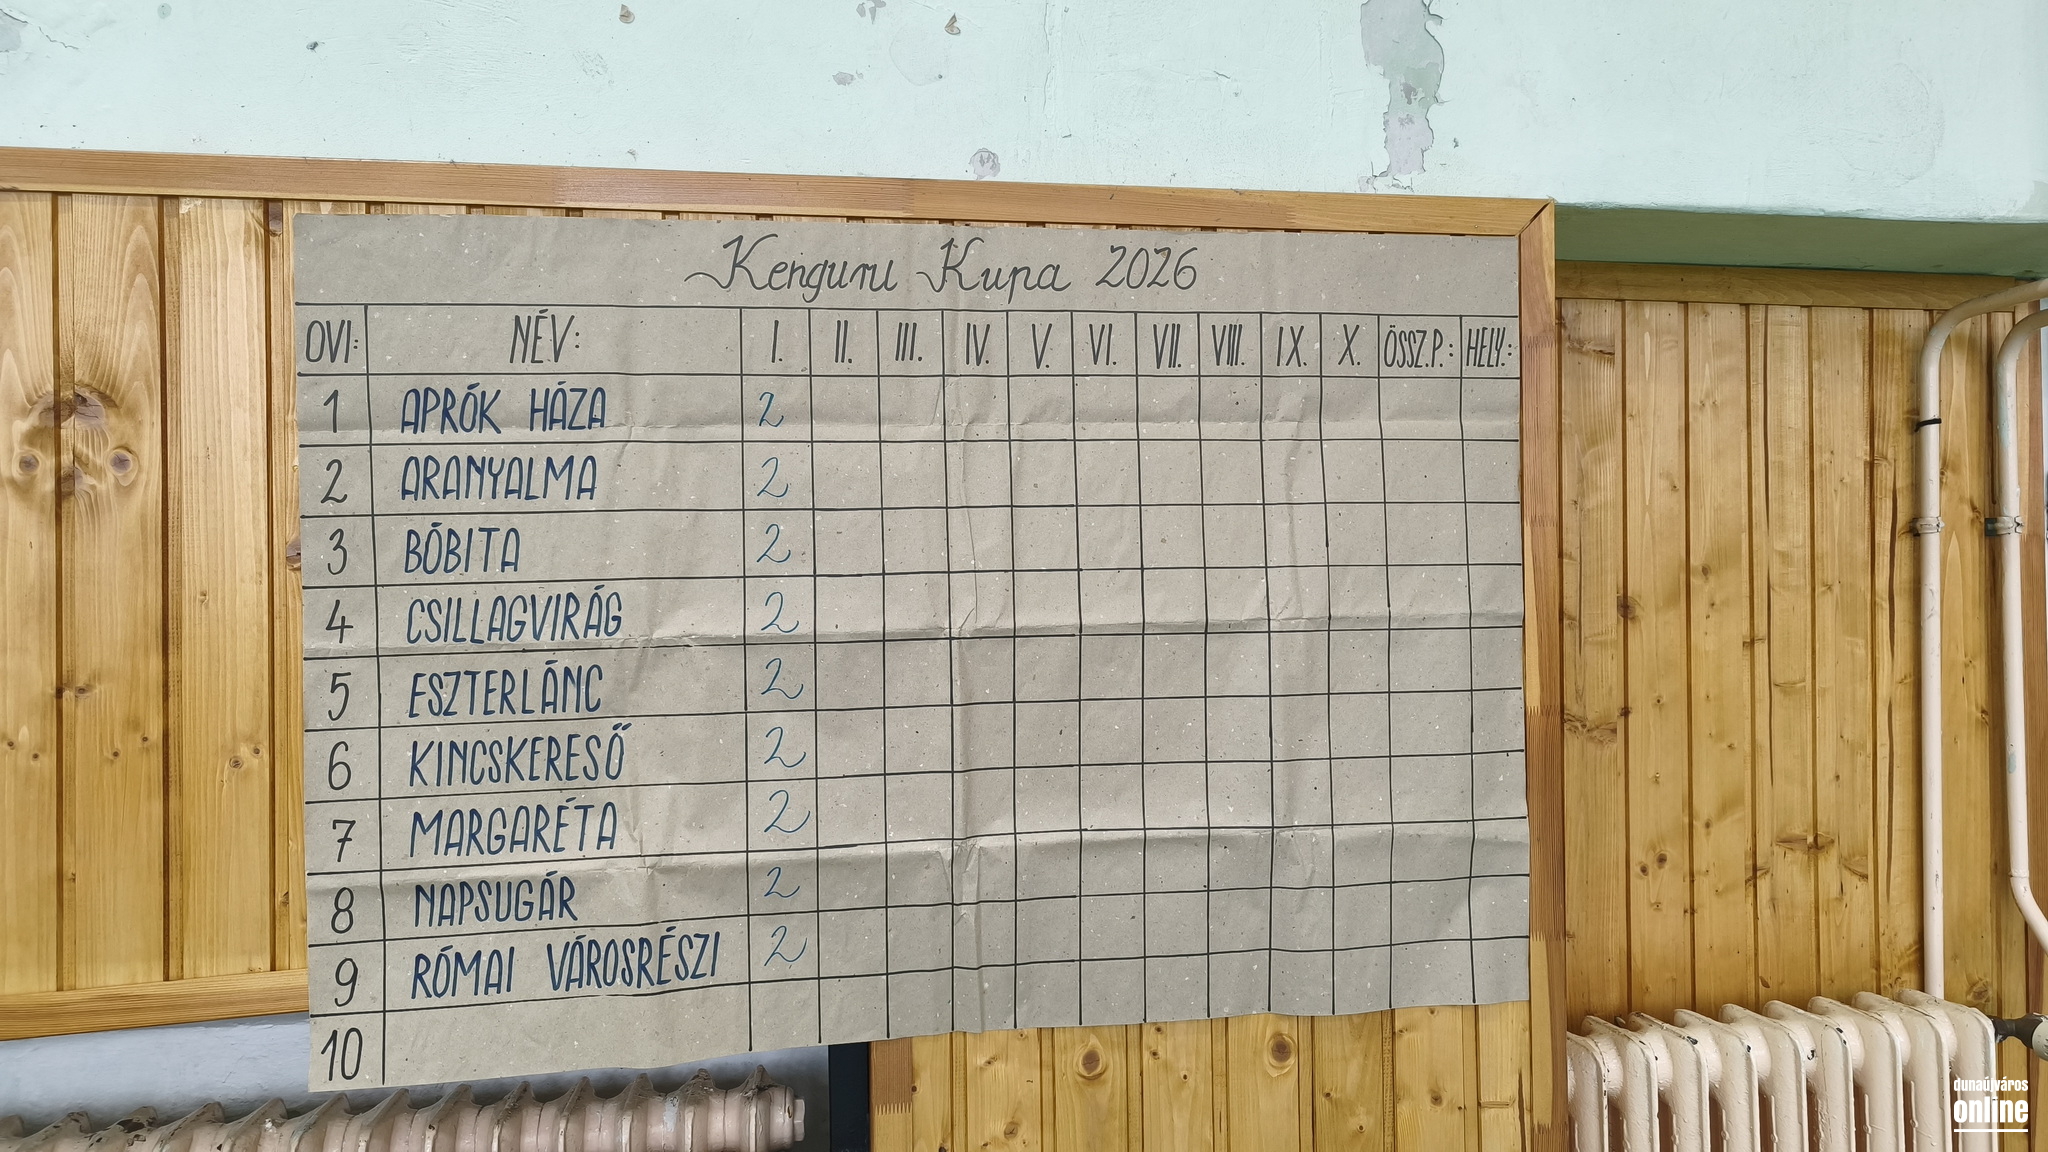 Kenguru Kupa 2026
OVI: NÉV: I. II. III. IV. V. VI. VII. VIII. IX. X. ÖSSZ.P.: HELY.:
1 APRÓK HÁZA 2
2 ARANYALMA 2
3 BÓBITA 2
4 CSILLAGVIRÁG 2
5 ESZTERLÁNC 2
6 KINCSKERESŐ 2
7 MARGARÉTA 2
8 NAPSUGÁR 2
9 RÓMAI VÁROSRÉSZI 2
10
dunaújváros
online